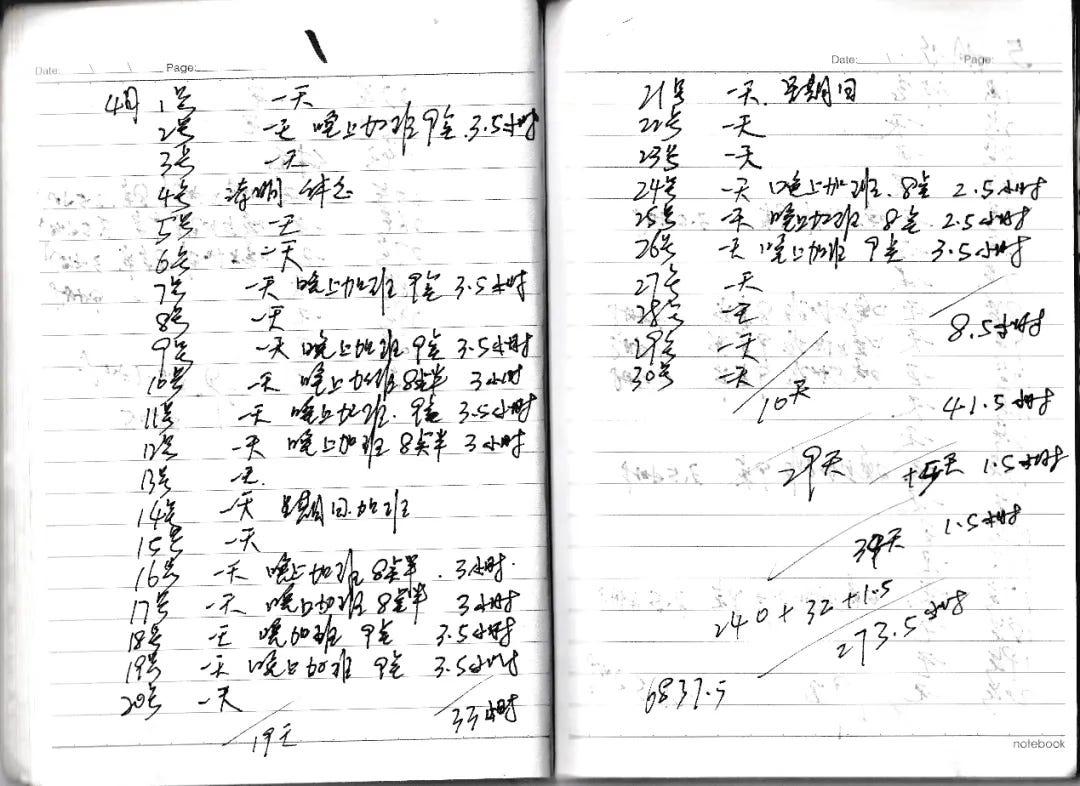 Date: / / Page:
4月 1号 一天
2号 一天 晚上加班 9点 3.5小时
3号 一天
4号 清明 休息
5号 一天
6号 一天
7号 一天 晚上加班 9点 3.5小时
8号 一天
9号 一天 晚上加班 9点 3.5小时
10号 一天 晚上加班 8点半 3小时
11号 一天 晚上加班. 9点 3.5小时
12号 一天 晚上加班 8点半 3小时
13号 一天.
14号 一天 星期日加班
15号 一天
16号 一天 晚上加班 8点半. 3小时.
17号 一天 晚上加班 8点半 3小时
18号 一天 晚加班 9点 3.5小时
19号 一天 晚上加班 9点 3.5小时
20号 一天
19天 33小时
Date: Page:
21号 一天. 星期日
22号 一天
23号 一天
24号 一天 晚上加班. 8点 2.5小时
25号 一天 晚上加班 8点 2.5小时
26号 一天 晚上加班 9点 3.5小时
27号 一天
28号 一天
29号 一天 8.5小时
30号 一天
10天 41.5小时
29天 +5天 1.5小时
34天 1.5小时
240+32+1.5
273.5小时
6837.5
notebook